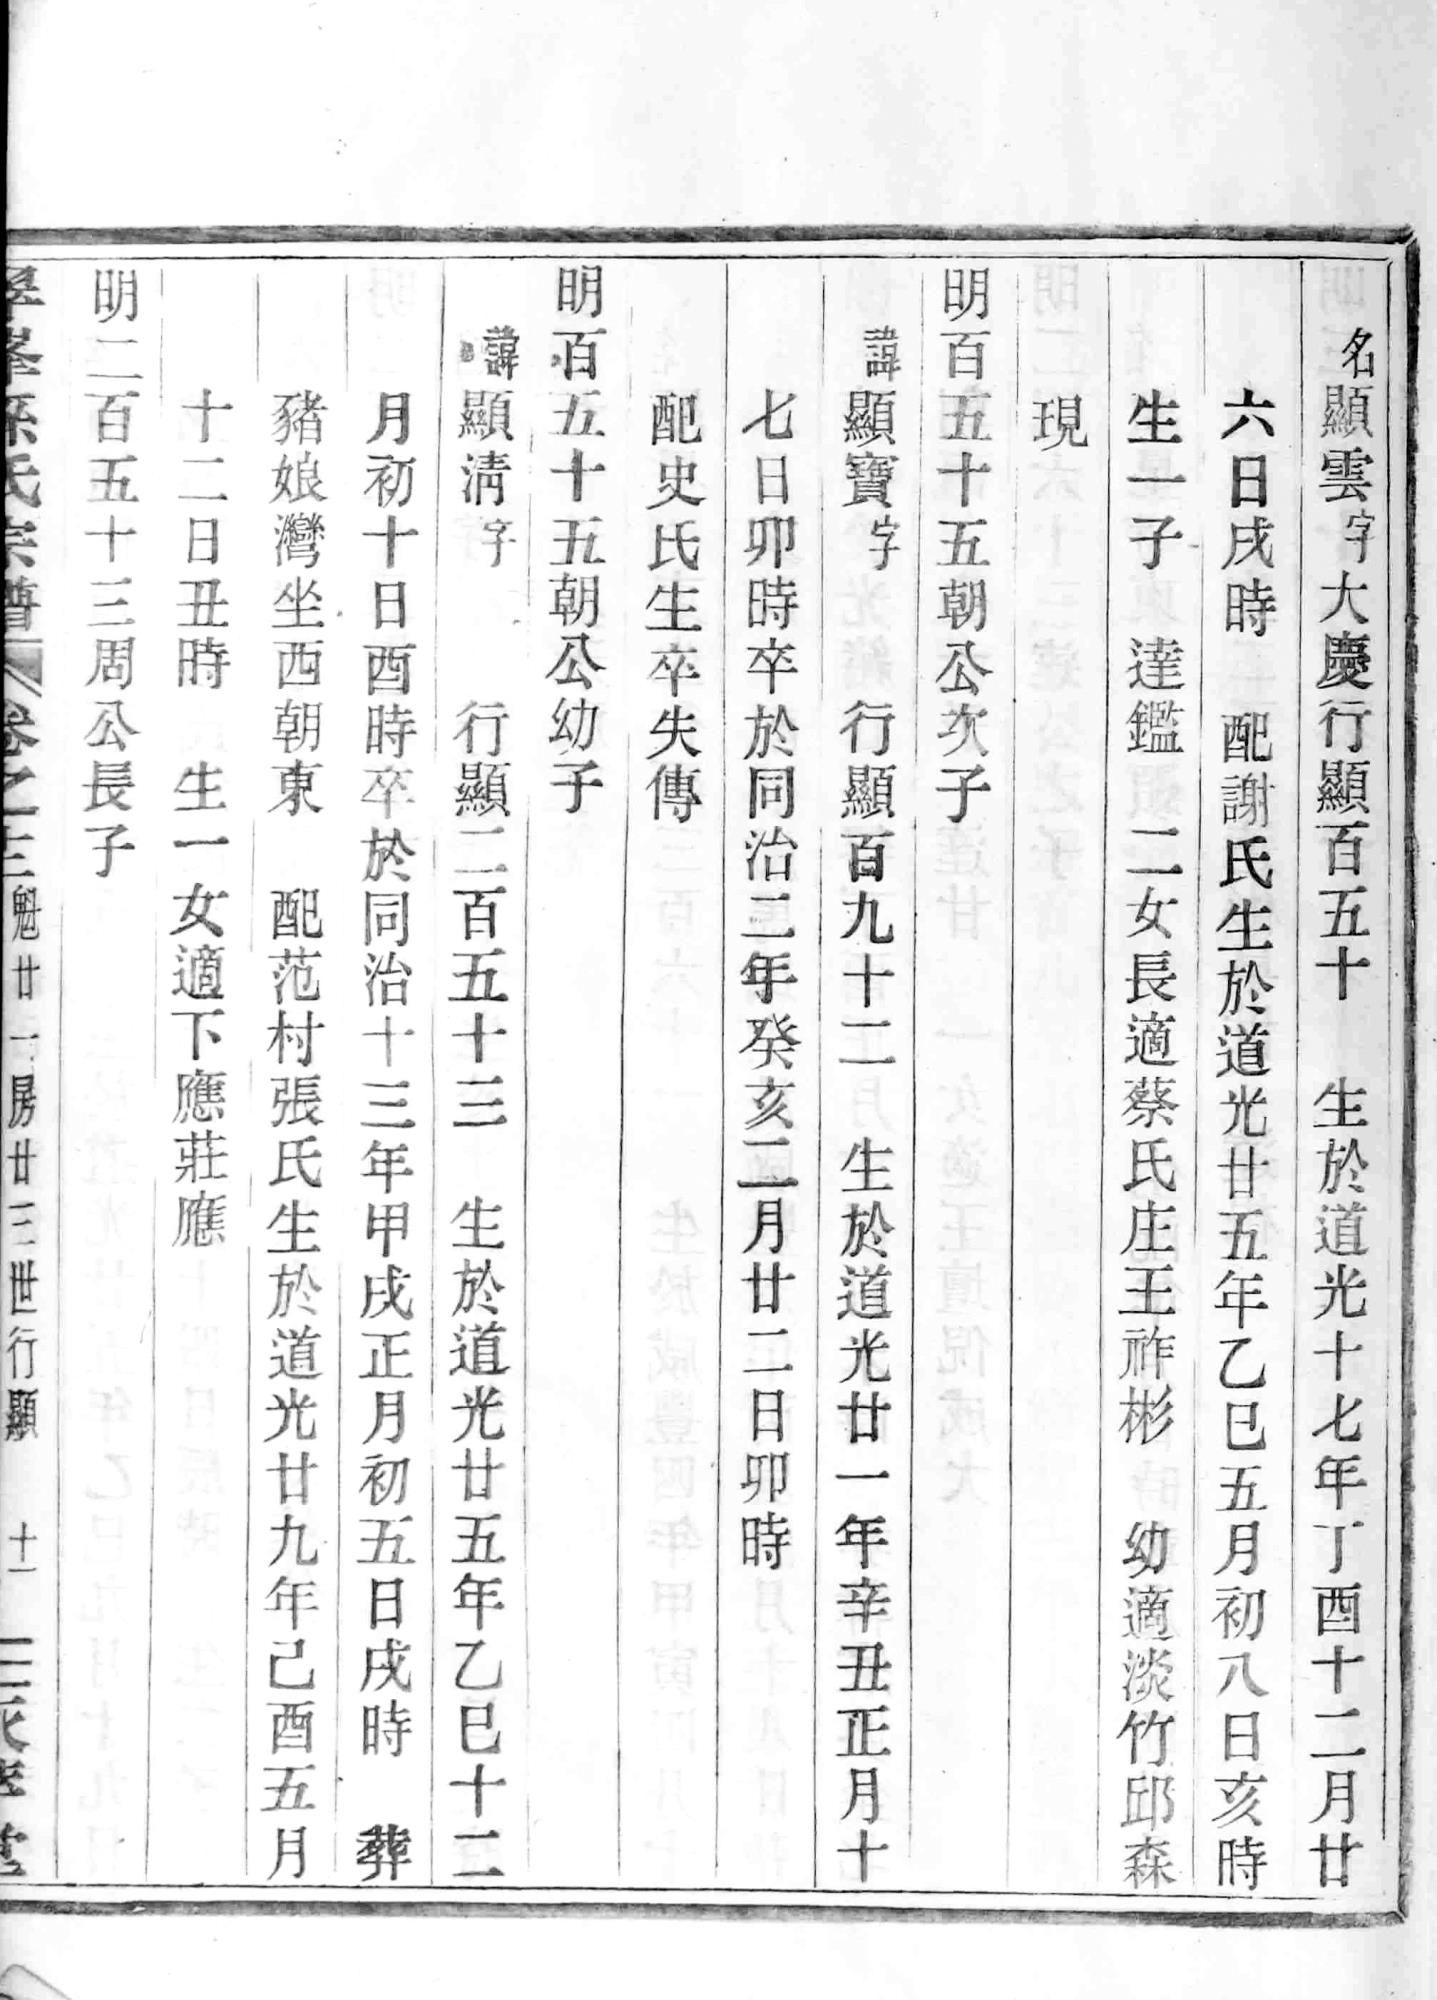 名顯雲字大慶行顯百五十　生於道光十七年丁酉十二月廿
六日戌時　配謝氏生於道光廿五年乙巳五月初八日亥時
生一子　達鑑　二女長適蔡氏庄王祚彬　幼適淡竹邱森
現
明百五十五朝公次子
諱顯寶字　行顯百九十二　生於道光廿一年辛丑正月十
七日卯時卒於同治二年癸亥二月廿二日卯時
配史氏生卒失傳
明百五十五朝公幼子
諱顯淸字　行顯二百五十三　生於道光廿五年乙巳十二
月初十日酉時卒於同治十三年甲戌正月初五日戌時　葬
豬娘灣坐西朝東　配范村張氏生於道光廿九年己酉五月
十二日丑時　生一女適下應莊應
明二百五十三周公長子
氏宗譜　卷之三　魁廿一房廿三世行顯　十一　堂